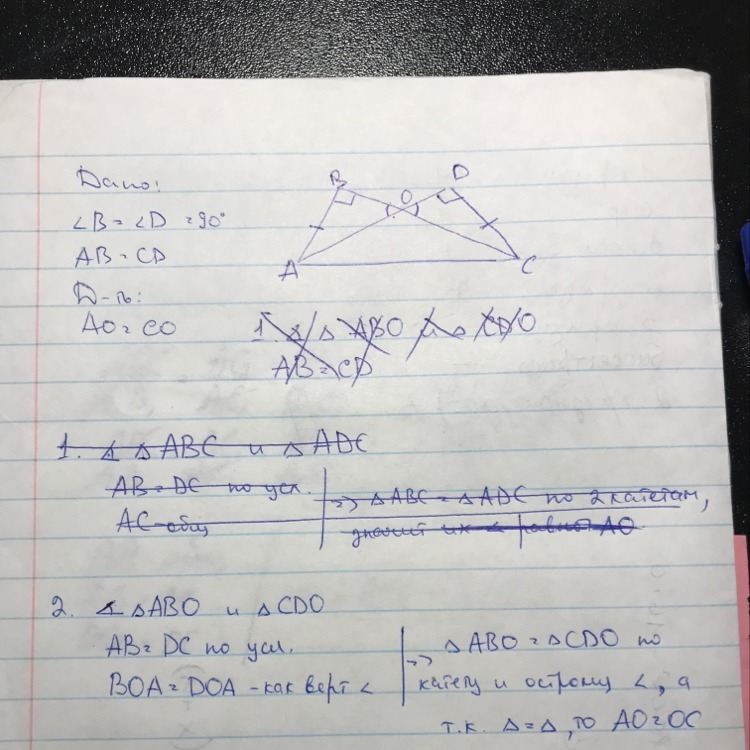 Дано:
∠B = ∠D = 90°
AB = CD
Д-ть:
AO = CO
B O D
A C
1. ∡ △ ABO и △ CDO
AB = CD
1. ∡ △ ABC и △ ADC
AB = DC по усл.
AC - общ
=> △ ABC = △ ADC по 2 катетам,
значит их ∠ равно AO
2. ∡ △ ABO и △ CDO
AB = DC по усл.
BOA = DOA - как верт ∠
=> △ ABO = △ CDO по
катету и острому ∠, а
т.к. △ = △, то AO = OC